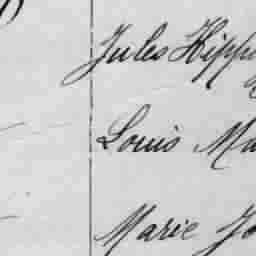 Jules Hippo
Louis Ma
Marie Jo